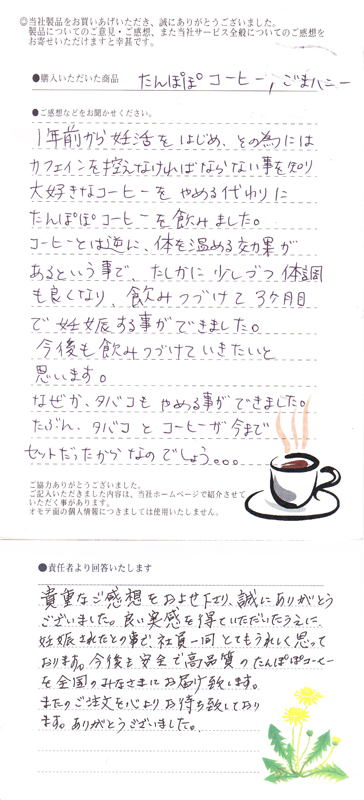 ◎当社製品をお買いあげいただき、誠にありがとうございました。
製品についてのご意見・ご感想、また当社サービス全般についてのご感想を
お寄せいただけますと幸甚です。
●購入いただいた商品 たんぽぽ コーヒー, ごまハニー
●ご感想などをお聞かせください。
1年前から妊活をはじめ、その為には
カフェインを控えなければならない事を知り
大好きなコーヒーを やめる代わりに
たんぽぽコーヒーを飲みました。
コーヒーとは逆に、体を温める効果が
あるという事で、たしかに 少しづつ 体調
も良くなり、飲みつづけて 3ヶ月目
で妊娠する事ができました。
今後も飲みつづけていきたいと
思います。
なぜか、タバコも やめる事ができました。
たぶん、タバコ と コーヒーが 今まで
セットだったからなのでしょう。。。
ご協力ありがとうございました。
ご記入いただきました内容は、当社ホームページで紹介させて
いただく事があります。
オモテ面の個人情報につきましては使用いたしません。
●責任者より回答いたします
貴重なご感想をおよせ下さり、誠にありがとう
ございました。良い実感を得ていただいたうえに、
妊娠されたとの事で、社員一同 とてもうれしく思って
おります。今後も安全で高品質のたんぽぽコーヒー
を全国のみなさまにお届け致します。
またのご注文を心より お待ち致しており
ます。ありがとうございました。